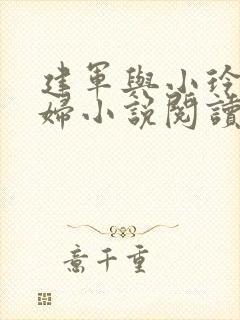 建軍與小玲
婦小說閱讀
意千重